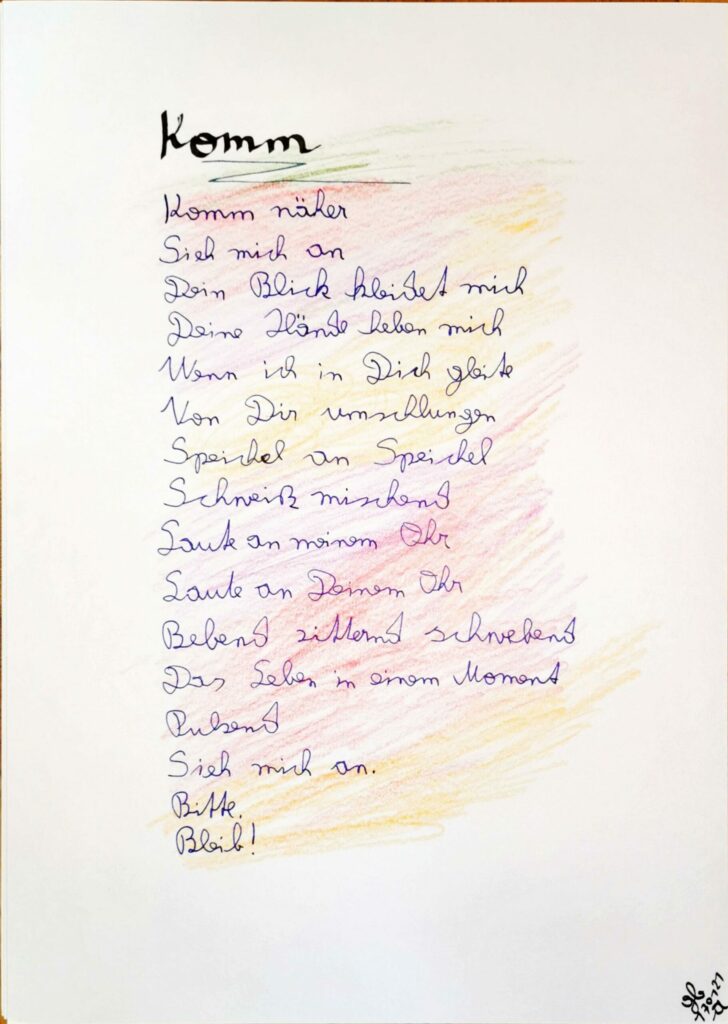 Komm
Komm näher
Sieh mich an
Dein Blick kleidet mich
Deine Hände heben mich
Wenn ich in Dich gleite
Von Dir umschlungen
Speichel an Speichel
Schweiß mischend
Laute an meinem Ohr
Laute an Deinem Ohr
Bebend zitternd schwebend
Das Leben in einem Moment
Pulsend
Sieh mich an.
Bitte.
Bleib!